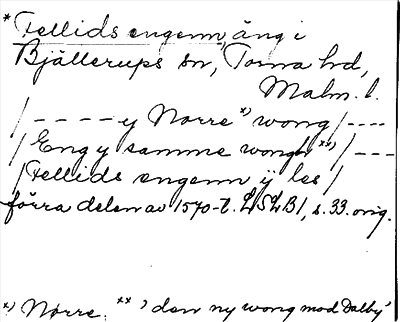 * Fellids engenn, äng i
Bjällerups sn, Torna hrd,
Malm. l.
/ - - - - - y Norre *) wong / - - - -
/ Eng y samme wongh **) / - - -
/ Fellids engenn ÿ les /
förra delen av 1570-t. LSLB1, s. 33. orig.
*) Nørre. **) den ny wong mod Dalby